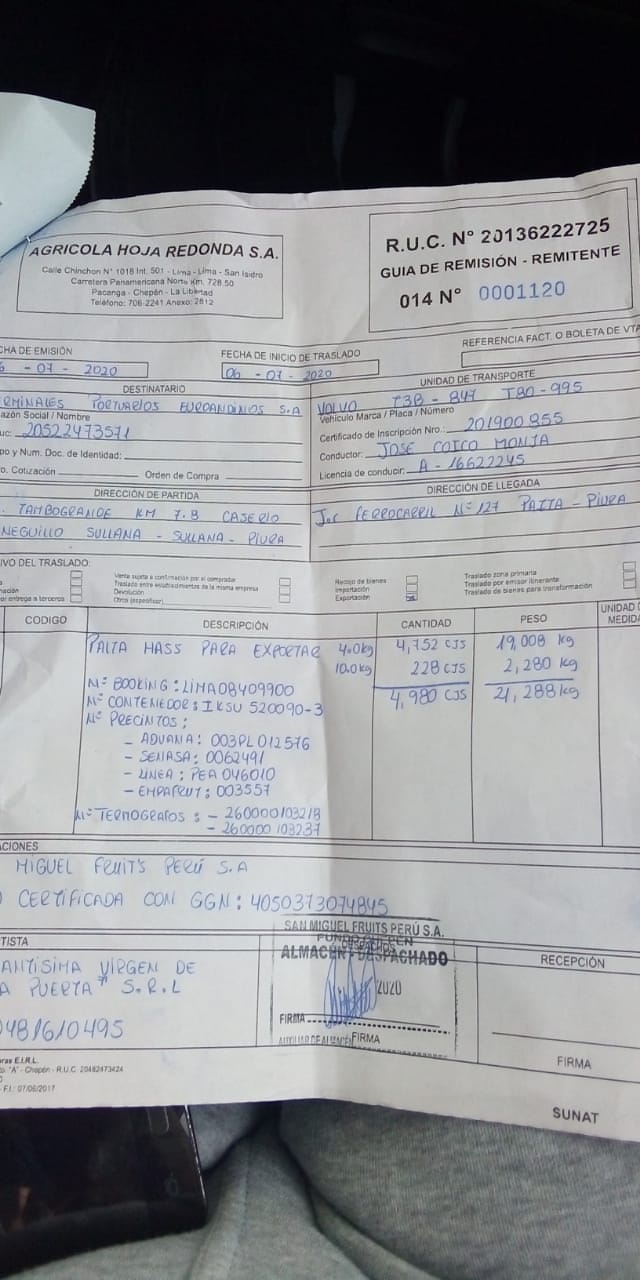 AGRICOLA HOJA REDONDA S.A.
Calle Chinchon N° 1018 Int. 501 - Lima - Lima - San Isidro
Carretera Panamericana Norte Km. 728.50
Pacanga - Chepén - La Libertad
Teléfono: 706-2241 Anexo: 2812
R.U.C. N° 20136222725
GUIA DE REMISIÓN - REMITENTE
014 N° 0001120
CHA DE EMISIÓN
6 - 07 - 2020
FECHA DE INICIO DE TRASLADO
06 - 07 - 2020
REFERENCIA FACT. O BOLETA DE VTA
DESTINATARIO
ERMINALES PORTUARIOS EUROANDINOS S.A
azón Social / Nombre
uc: 20522473571
po y Num. Doc. de Identidad:
o. Cotización Orden de Compra
UNIDAD DE TRANSPORTE
VOLVO T3B - 847 TBO - 995
Vehículo Marca / Placa / Número
Certificado de Inscripción Nro.: 201900855
Conductor: JOSE COICO MONJA
Licencia de conducir: A - 16622245
DIRECCIÓN DE PARTIDA
. TAMBOGRANDE KM 7.8 CASERIO
NEGUILLO SULLANA - SULLANA - PIURA
DIRECCIÓN DE LLEGADA
FERROCARRIL N° 127 PAITA - PIURA
IVO DEL TRASLADO:
or entrega a terceros
Venta sujeta a confirmación por el comprador
Traslado entre establecimientos de la misma empresa
Devolución
Otros (especificar)
Recojo de bienes
Importación
Exportación
Traslado zona primaria
Traslado por emisor itinerante
Traslado de bienes para transformación
CODIGO DESCRIPCIÓN CANTIDAD PESO UNIDAD D
MEDIDA
PALTA HASS PARA EXPORTAR 4.0kg 4,752 CJS 19,008 kg
10.0kg 228 CJS 2,280 kg
4,980 CJS 21,288 kg
N° BOOKING : LIMA08409900
N° CONTENEDOR : IKSU 520090-3
N° PRECINTOS :
- ADUANA : 003PL012576
- SENASA : 0062491
- LINEA : PEA 046010
- EMPAFRUT : 003557
N° TERMOGRAFOS : - 260000103218
- 260000103237
ACIONES
MIGUEL FRUITS PERÚ S.A
CERTIFICADA CON GGN : 4050373074845
TISTA
ANTISIMA VIRGEN DE
A PUERTA" S.R.L
0481610495
SAN MIGUEL FRUITS PERÚ S.A.
ALMACEN DESPACHADO
2020
FIRMA
FIRMA
RECEPCIÓN
FIRMA
ras E.I.R.L.
"A" - Chepén - R.U.C. 20482473424
F.I.: 07/06/2017
SUNAT